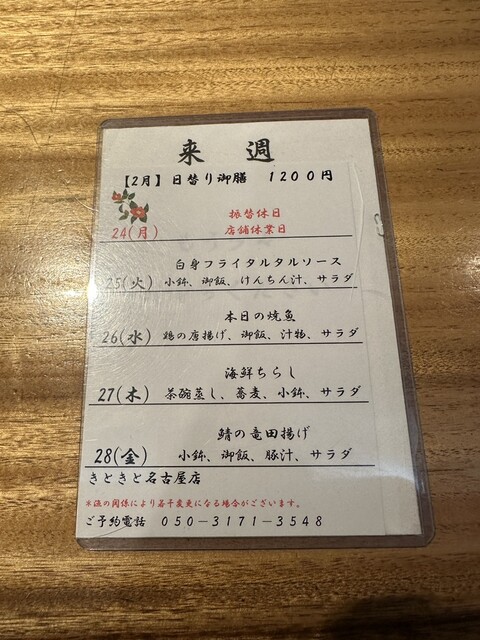 来週
【2月】日替り御膳　1200円
振替休日
24(月)　店舗休業日
白身フライタルタルソース
25(火)　小鉢、御飯、けんちん汁、サラダ
本日の焼魚
26(水)　鶏の唐揚げ、御飯、汁物、サラダ
海鮮ちらし
27(木)　茶碗蒸し、蕎麦、小鉢、サラダ
鯖の竜田揚げ
28(金)　小鉢、御飯、豚汁、サラダ
きときと名古屋店
*漁の関係により若干変更になる場合がございます。
ご予約電話　050－3171－3548